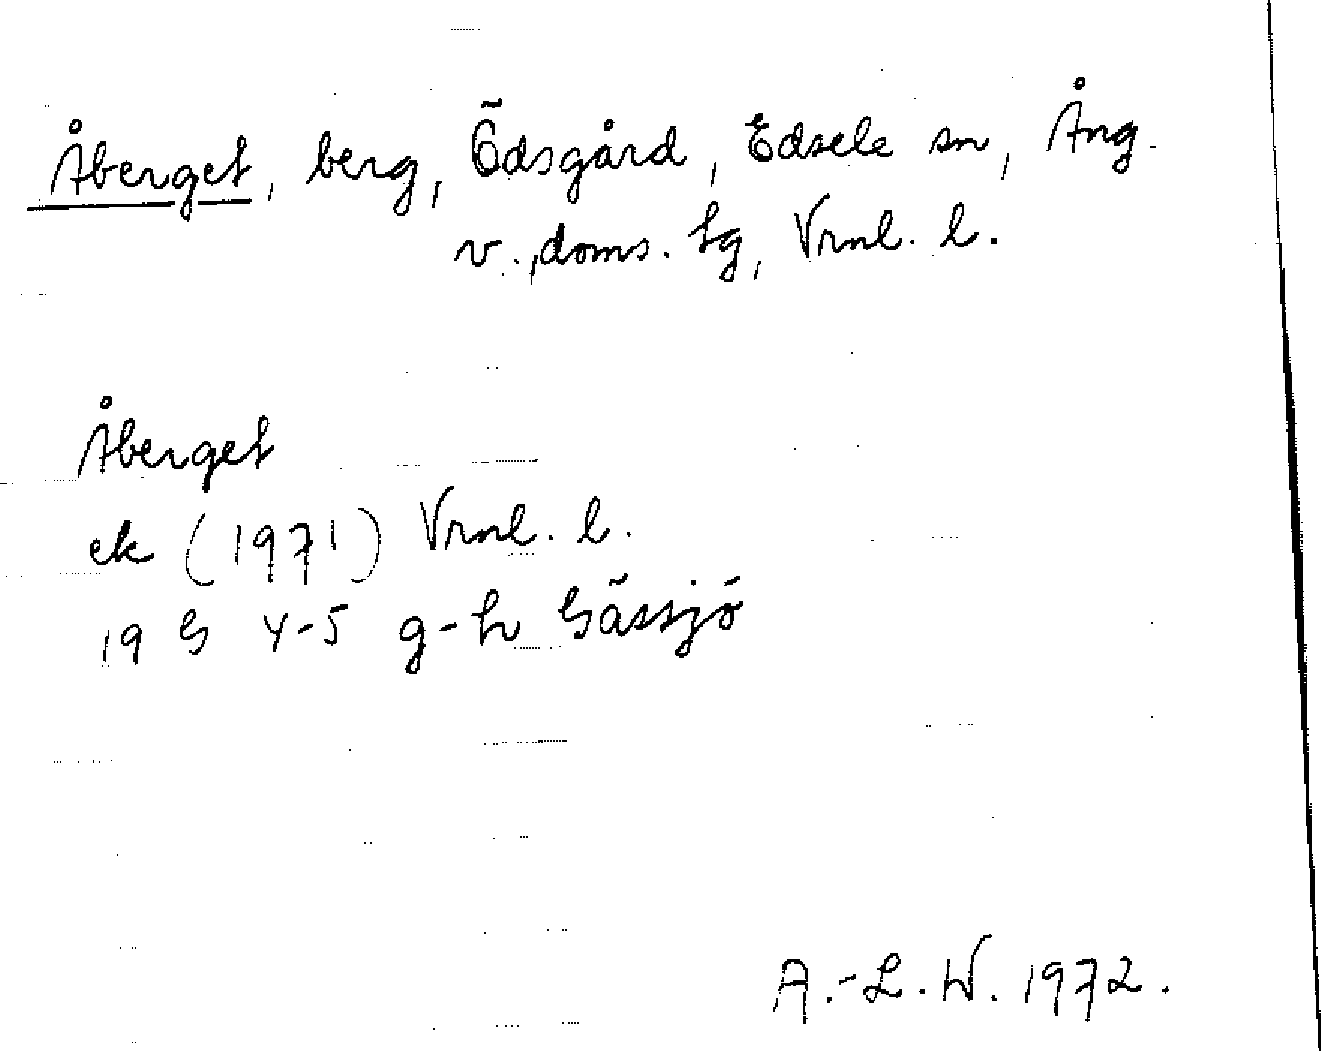 Åberget, berg, Ödsgård, Edsele sn, Ång.
v., doms. lg, Vrnl. l.
Åberget
ek (1971) Vrnl. l.
19 G 4-5 g-h Gåssjö
A.-L.W. 1972.